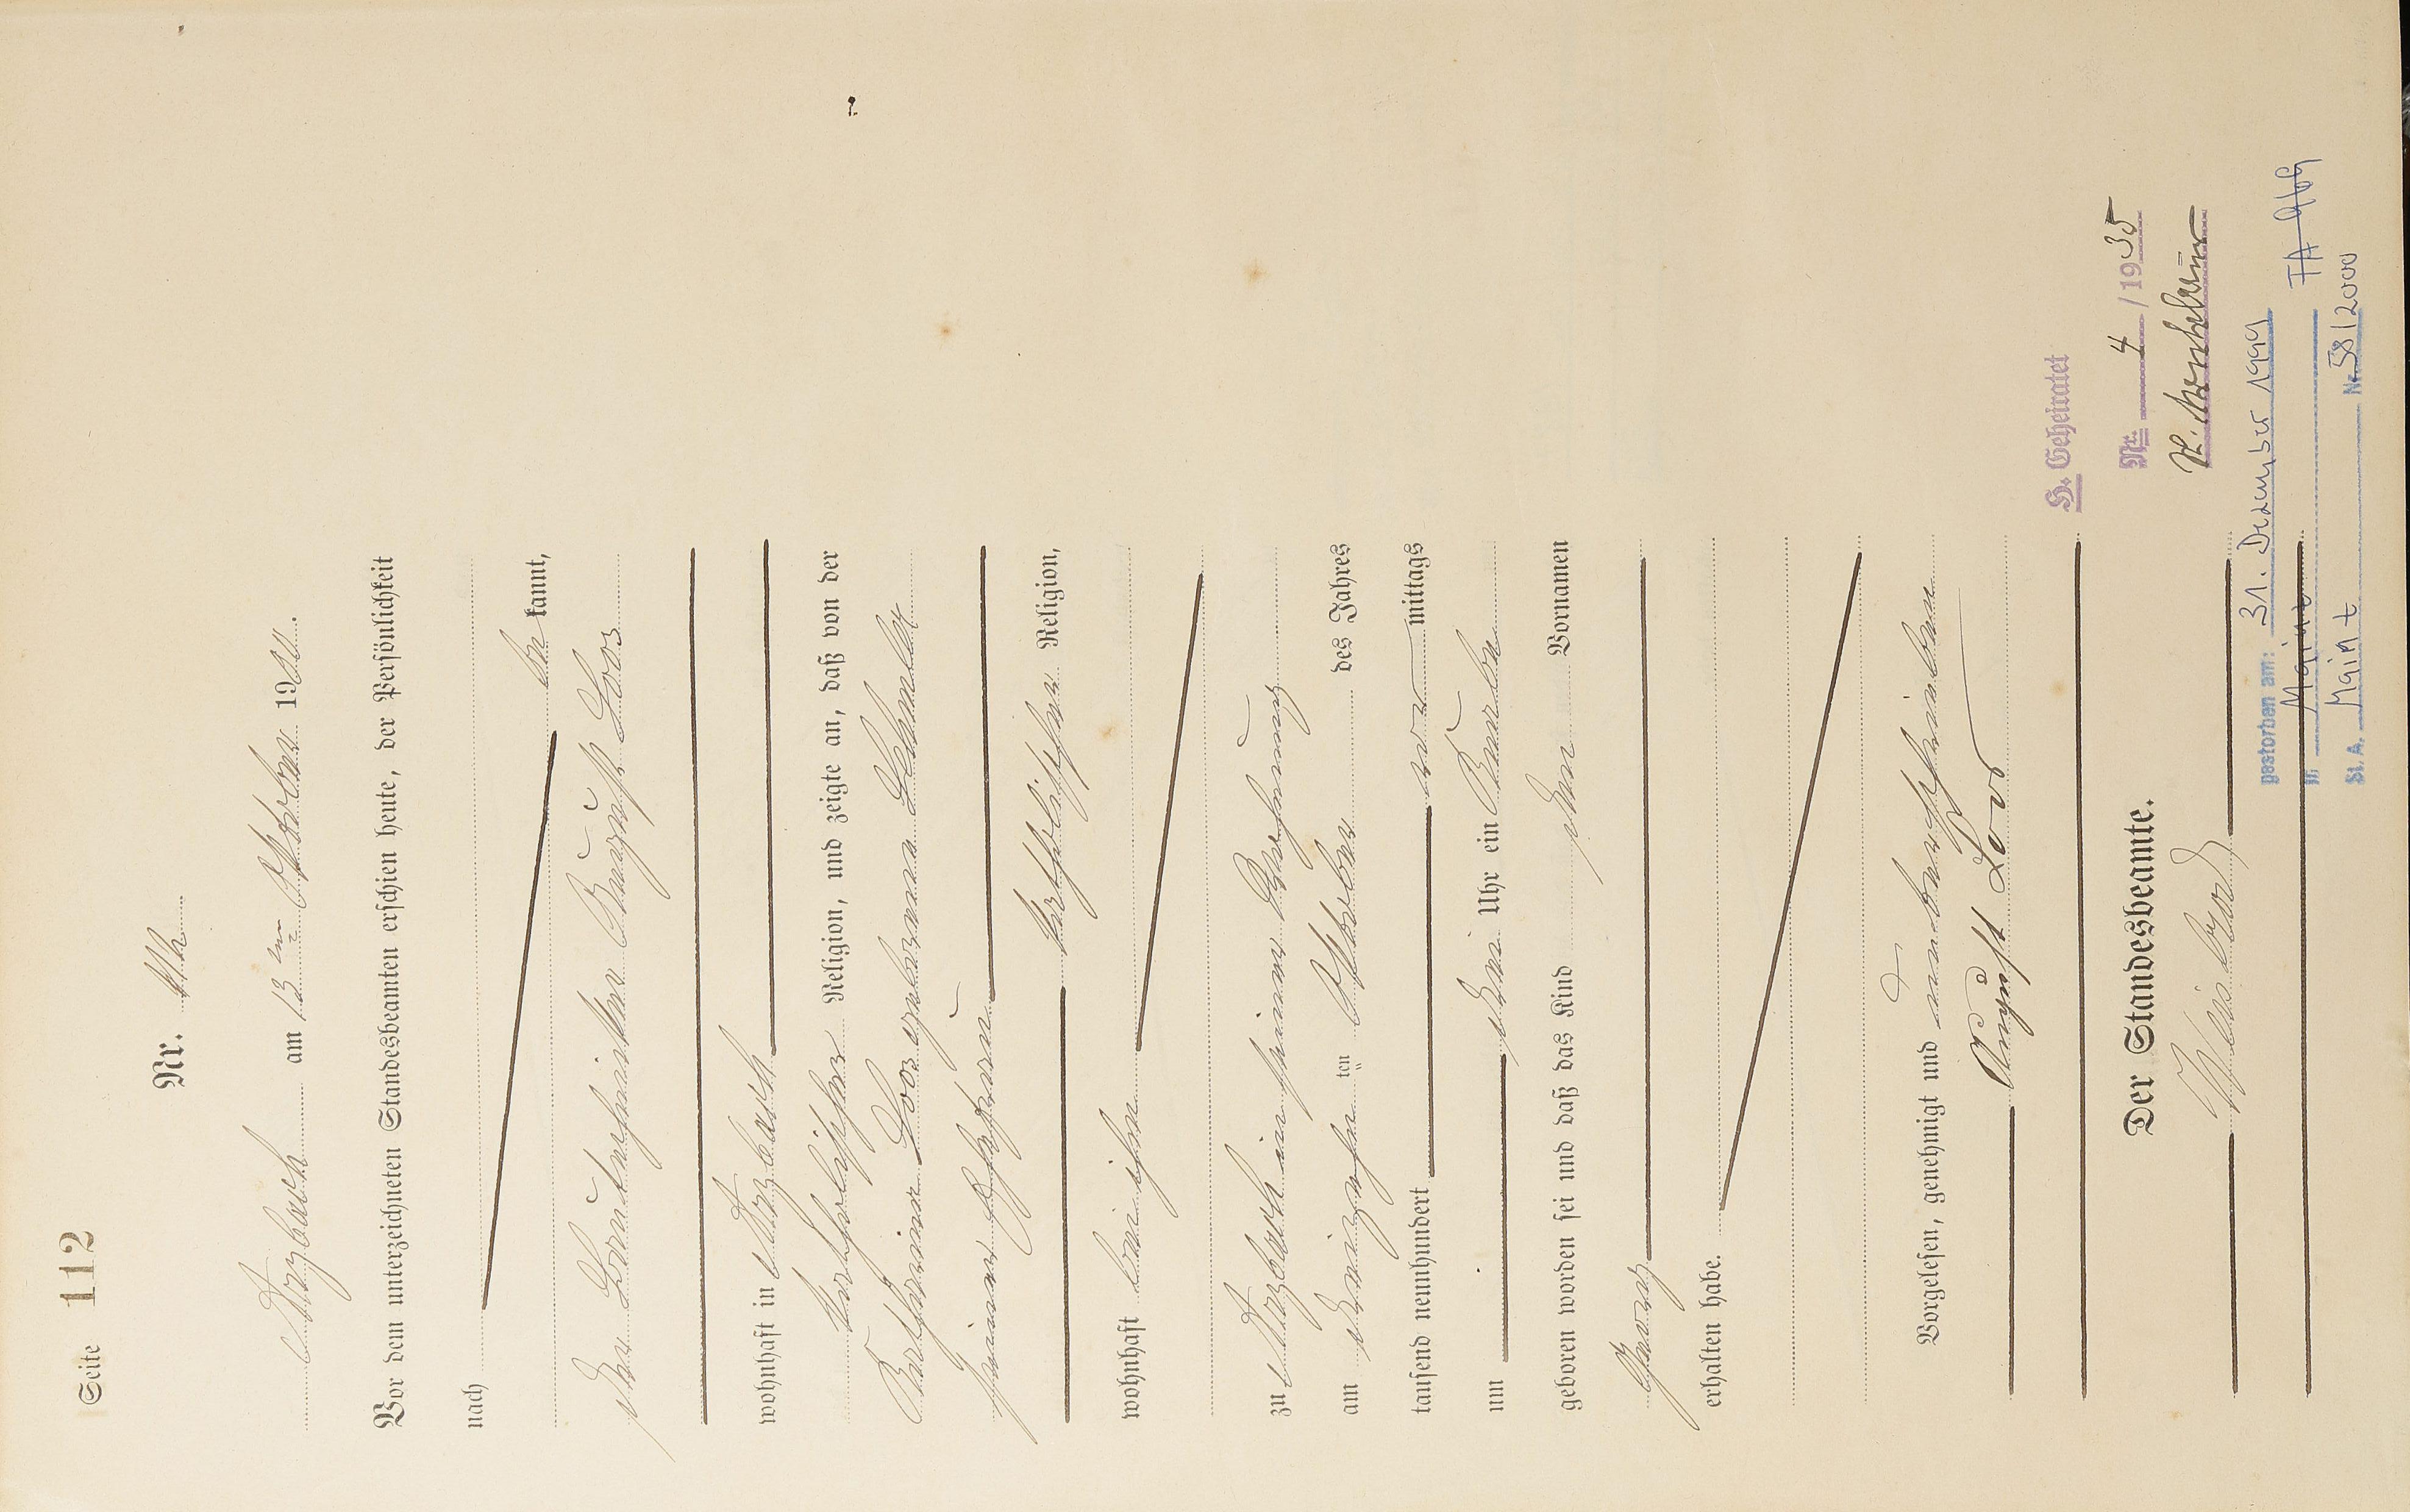 Seite 112
Nr.
Arzbach am 13ten Oktober 19
Vor dem unterzeichneten Standesbeamten erschien heute, der Persönlichkeit
nach
be kannt,
der August Loos
wohnhaft in Arzbach
katholischer Religion, und zeigte an, daß von der
Katharina Loos geborenen
seiner Ehefrau
katholischer Religion,
wohnhaft bei ihm
zu Arzbach in seiner Wohnung
am dreizehnten Oktober des Jahres
tausend neunhundert vor mittags
um drei Uhr ein Knabe
geboren worden sei und daß das Kind den Vornamen
erhalten habe.
Vorgelesen, genehmigt und unterschrieben
August Loos
Der Standesbeamte.
H. Geheiratet
Nr. 4 / 1935
gestorben am: 31. Dezember 1999
in Mainz
St. A. Mainz Nr. 58/2000